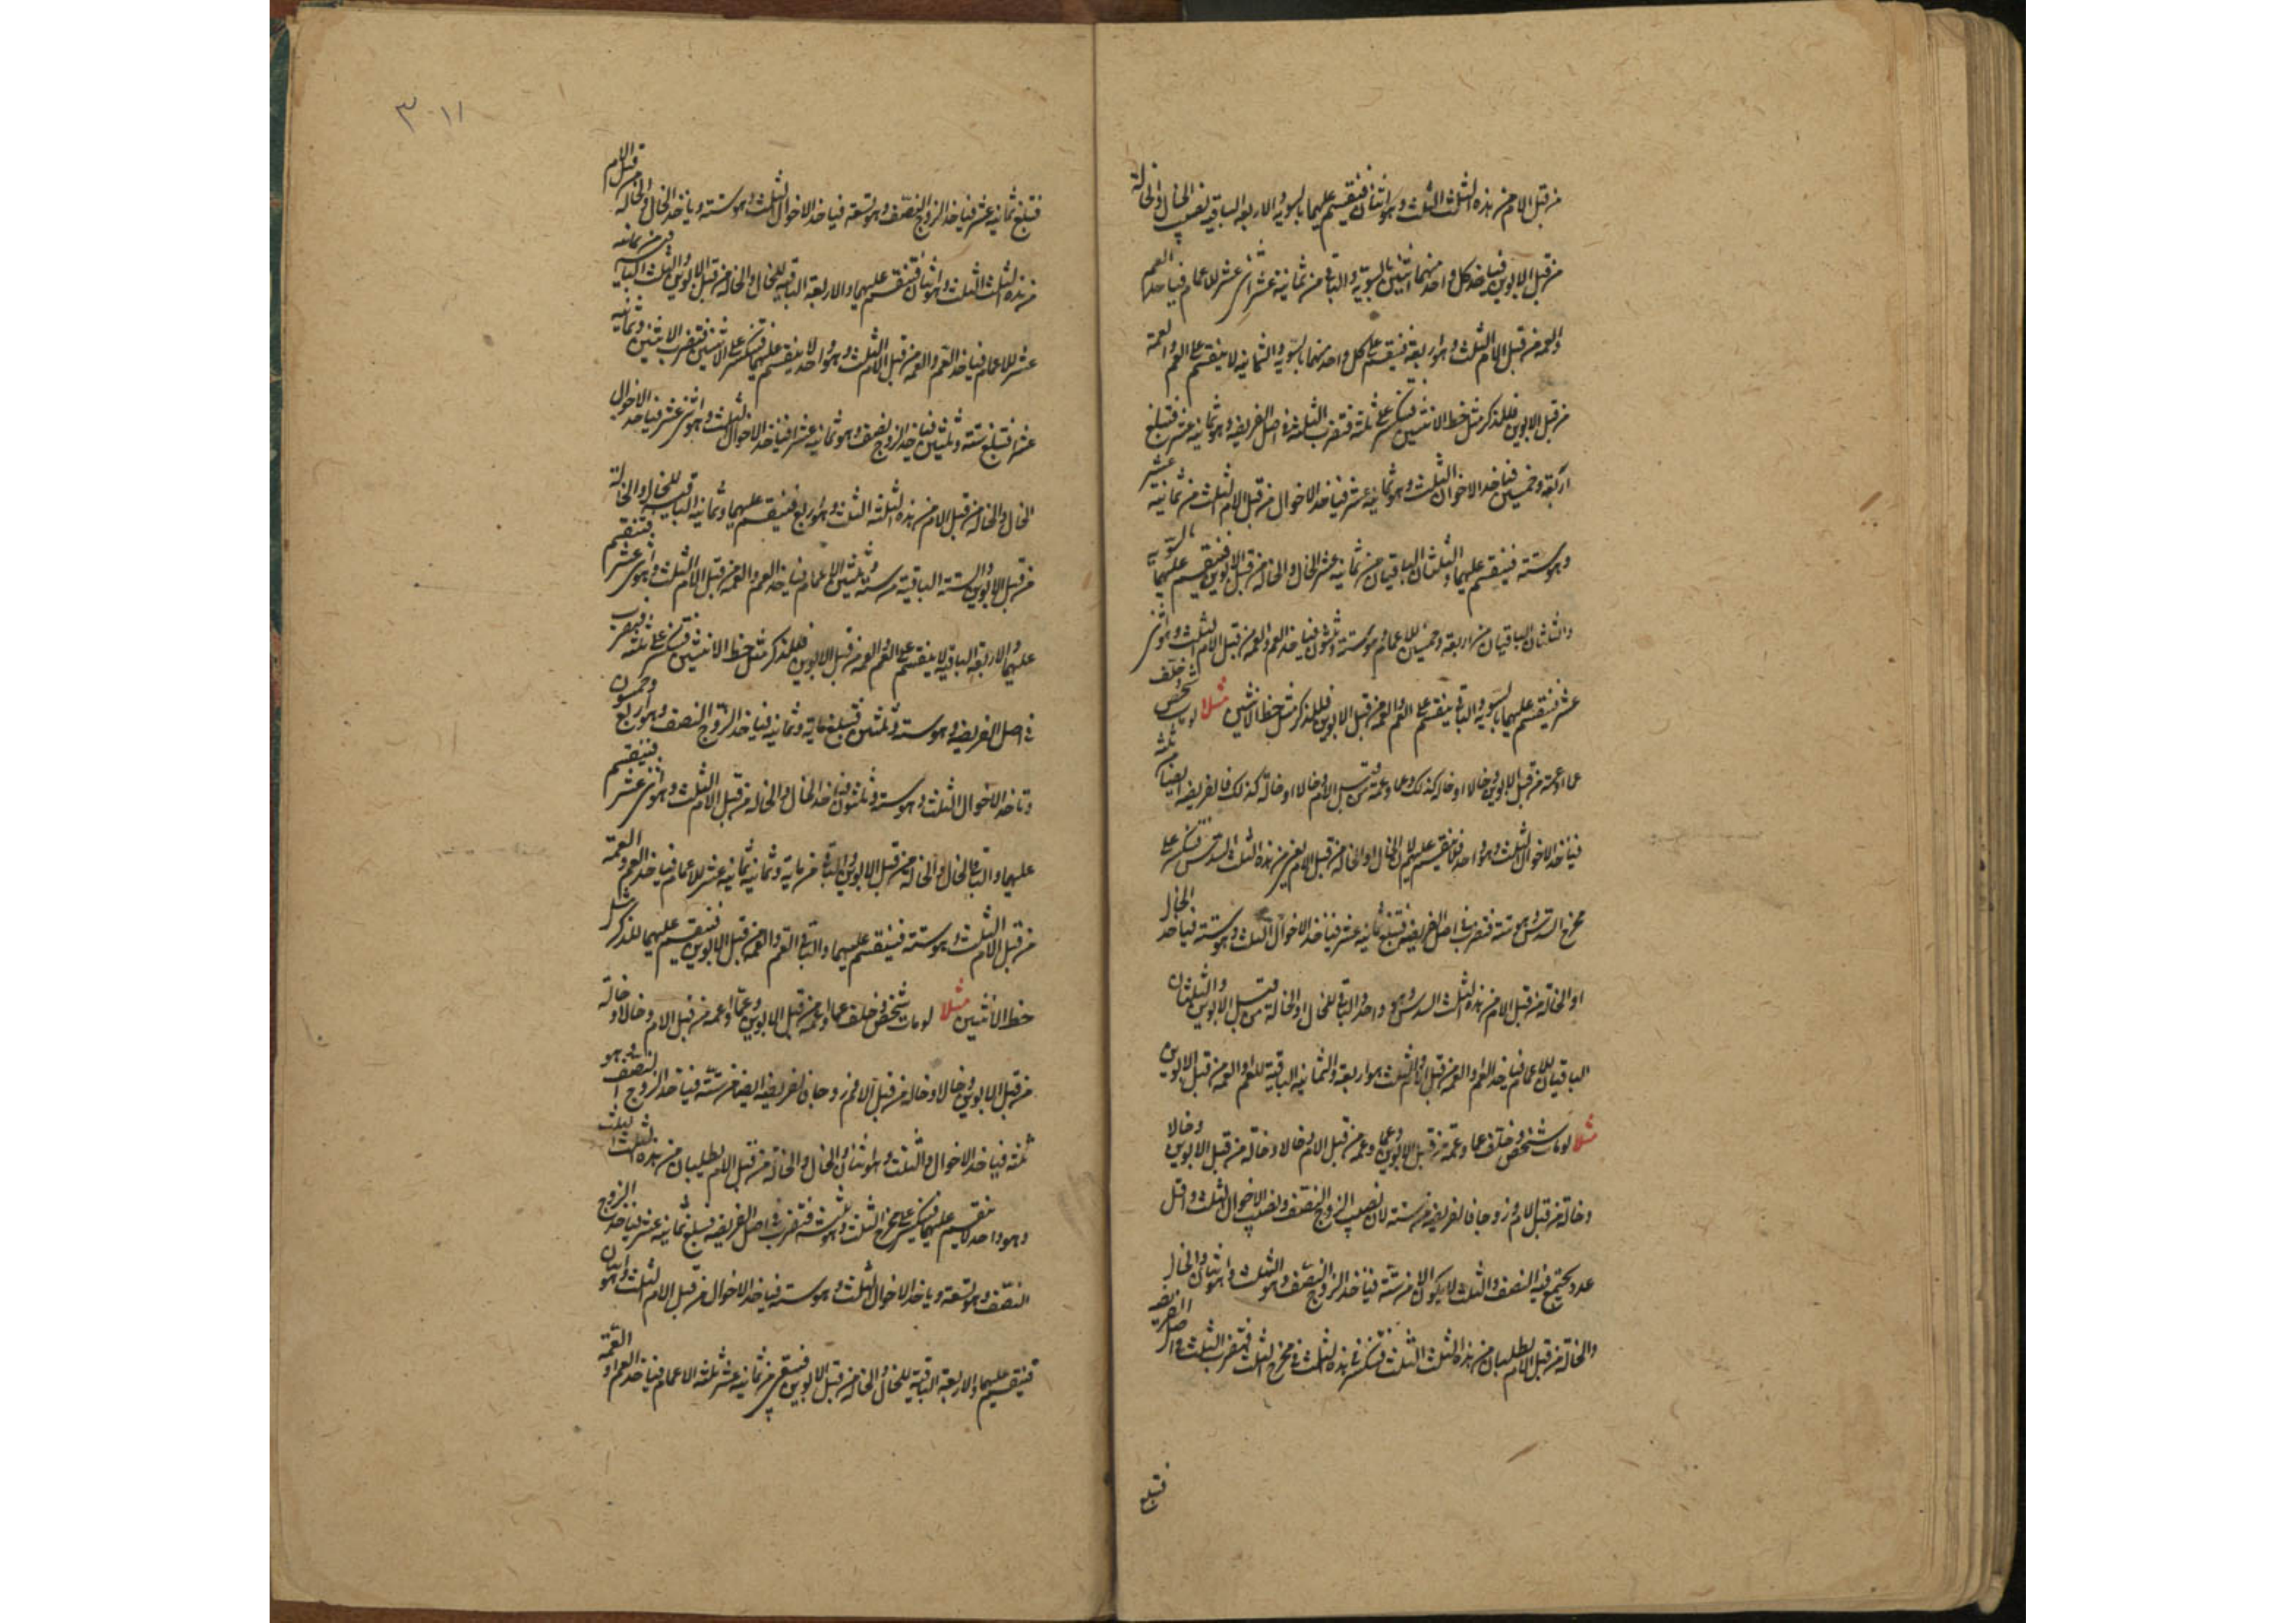 من قبل الام من هذه الثلث الثلث وهو اثنان فينقسم عليهما بالسويه والاربعه الباقيه نصيب الخال والخالة
من قبل الابوين فياخذ كل واحد منهما اثنين بالسويه والباقي من ثمانية عشر اثنى عشر للاعمام فياخذ العم
والعمه من قبل الام الثلث وهو اربعة فينقسم على كل واحد منهما بالسويه والثمانيه لا ينقسم على العم والعمة
من قبل الابوين فللذكر مثل حظ الانثيين فتنكسر على ثلثة فتضرب الثلثة في اصل الفريضه وهو ثمانيه عشر فتبلغ
اربعة وخمسين فياخذ الاخوال الثلث وهو ثمانيه عشر فياخذ الاخوال من قبل الام الثلث من ثمانية عشر
وهو ستة فينقسم عليهما والثلثان الباقيان من ثمانيه عشر الخال والخاله من قبل الابوين فينقسم عليهما بالسوية
والثلثان الباقيان من اربعة وخمسين للاعمام وهو ستة وثلثون فياخذ العم والعمه من قبل الام الثلث وهو اثنى
عشر فينقسم عليهما بالسويه والباقي ينقسم على العم والعمه من قبل الابوين فللذكر مثل حظ الانثيين مثلا لو مات شخص وخلف
عما او عمة من قبل الابوين وخالا او خاله كذلك وعما وعمة من قبل الام وخالا او خالة كذلك فالفريضه ايضا من ثلثة
فياخذ الاخوال الثلث وهو واحد فلا ينقسم عليهم لان الخال او الخاله من قبل الام له من هذه الثلث السدس فتنكسر على
مخرج السدس وهو ستة فتضرب في اصل الفريضه فتبلغ ثمانيه عشر فياخذ الاخوال الثلث وهو ستة فياخذ الخال
او الخالة من قبل الام من هذه الثلث السدس وهو واحد والباقي للخال او الخالة من قبل الابوين والثلثان
الباقيان للاعمام فياخذ العم والعمه من قبل الام الثلث وهو اربعة والثمانيه الباقية للعم او العمه من قبل الابوين
مثلا لو مات شخص وخلف عما وعمة من قبل الابوين وعما وعمه من قبل الام وخالا وخالة من قبل الابوين وخالا
وخالة من قبل الام وزوجا فالفريضه من ستة لان نصيب الزوج النصف ونصيب الاخوال الثلث واقل
عدد يجتمع فيه النصف والثلث لا يكون الا من ستة فياخذ الزوج النصف وهو الثلث وهو اثنان والخال
والخالة من قبل الام يطلبان من هذه الثلث الثلث فتنكسر في هذه الثلث في مخرج الثلث فتضرب الثلث في اصل الفريضه
فتبلغ
٣٠١١
فتبلغ ثمانيه عشر فياخذ الزوج النصف وهو تسعة فياخذ الاخوال الثلث وهو ستة وياخذ الخال والخاله من قبل الام
من هذه الثلث الثلث وهو اثنان فينقسم عليهما والاربعة الباقيه للخال والخاله من قبل الابوين والثلث الباقيه من ثمانيه
عشر للاعمام فياخذ العم والعمه من قبل الام الثلث وهو واحد لا ينقسم عليهما فتنكسر على الاثنين فتضرب الاثنين في ثمانيه
عشر فتبلغ ستة وثلثين فياخذ الزوج نصف وهو ثمانيه عشر فياخذ الاخوال الثلث وهو اثنى عشر فياخذ الاخوال
الخال والخاله من قبل الام من هذه الثلثه الثلث وهو اربع فينقسم عليهما وثمانية الباقيه للخال والخالة
من قبل الابوين والستة الباقية من ستة وثلثين للاعمام فياخذ العم والعمه من قبل الام الثلث وهو اثنى عشر فتنقسم
عليهما والاربعة الباقيه لا ينقسم على العم والعمه من قبل الابوين فللذكر مثل حظ الانثيين فتنكسر على ثلثة فتضرب
في اصل الفريضه وهو ستة وثلثين فتبلغ ماية وثمانيه فياخذ الزوج النصف وهو اربع وخمسون
وتاخذ الاخوال الثلث وهو ستة وثلثون فياخذ الخال والخاله من قبل الام الثلث وهو اثنى عشر فينقسم
عليهما والباقي للخال والخالة من قبل الابوين والباقي من ماية وثمانيه ثمانيه عشر للاعمام فياخذ العم والعمة
من قبل الام الثلث وهو ستة فينقسم عليهما والباقي العم والعمه من قبل الابوين فينقسم عليهما للذكر مثل
حظ الانثيين مثلا لو مات شخص وخلف عما او عمه من قبل الابوين وعما او عمه من قبل الام وخالا او خالة
من قبل الابوين وخالا او خاله من قبل الام وزوجا فالفريضه ايضا من ستة فياخذ الزوج النصف وهو
ثلثة فياخذ الاخوال الثلث وهو اثنان والخال والخالة من قبل الام يطلبان من هذه الثلث الثلث
وهو واحد لا ينقسم عليهما فتنكسر على مخرج الثلث وهو ثلثة فتضرب في اصل الفريضه فتبلغ ثمانيه عشر فياخذ الزوج
النصف وهو تسعة وياخذ الاخوال الثلث وهو ستة فياخذ الاخوال من قبل الام الثلث وهو اثنان
فينقسم عليهما والاربعة الباقية للخال والخاله من قبل الابوين فبقى من ثمانيه عشر ثلثة الاعمام فياخذ العم او العمة